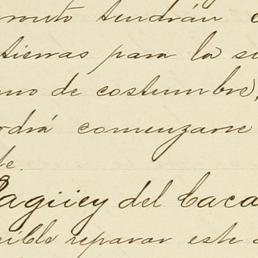 muto tendrán
tierras para la su
mo de costumbre,
odrá comenzarse
te.
Sagüey del Caca
sible reparar este